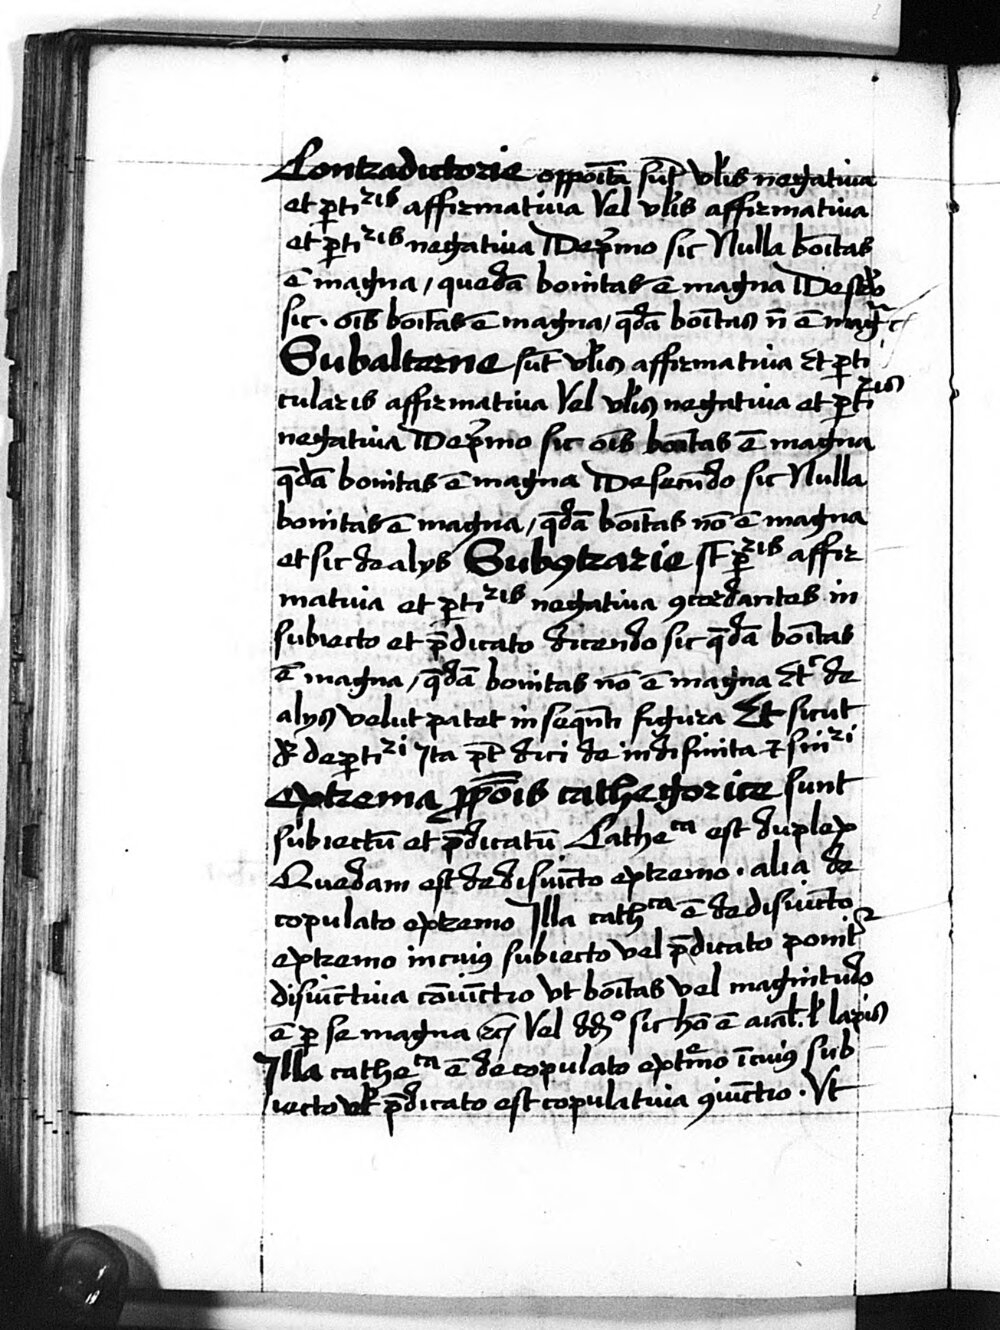 Contradictorie oppoīta sūt vl̄is negatiua
et ꝑtiᶻⁱˢ affirmatiua Vel vl̄is affirmatiua
et ꝑtiᶻⁱˢ negatiua De pͥmo sic Nulla boītas
ē magna / quedā bonitas ē magna De scd̄o
sic · oīs boītas ē magna / qd̄ā boītas n̄ ē mag
Subalterne sūt vl̄is affirmatiua Et ꝑti
cularis affirmatiua Vel vl̄is negatiua et ꝑtiᶻⁱˢ
negatiua De pͥmo sic oīs boītas ē magna
qd̄ā bonitas ē magna De secūdo sic Nulla
bonitas ē magna / qd̄ā boītas nō ē magna
et sic de alys Subꝯtrarie sūt ꝑᶻⁱˢ affir
matiua et ꝑtiᶻⁱˢ negatiua ꝯcordantes in
subiecto et p̄dicato dicendo sic qd̄ā boītas
ē magna / qd̄ā bonitas nō ē magna Etᶜ de
alys velut patet in seqn̄ti figura Et sicut
de ꝑtiᶻⁱ Ita pt̄ dici de indifinita et sinᶻⁱ
Extrema ꝓpōis cathegorice sunt
subiectū et p̄dicatū Catheᶜᵃ est duplex
Quedam est de disiūcto extremo · alia de
copulato extremo Illa cathᶜᵃ ē de disiūcto
extremo in cuiꝰ subiecto vel p̄dicato ponit᷑
disiūctiua cōiūctio vt boītas vel magnitudo
ē ꝑ se magna Vel sic hō ē aīal l̄ lapis
Illa catheᶜᵃ ē de copulato extremo ī cuiꝰ sub
iecto vel p̄dicato est copulatiua ꝯiūctio · Vt